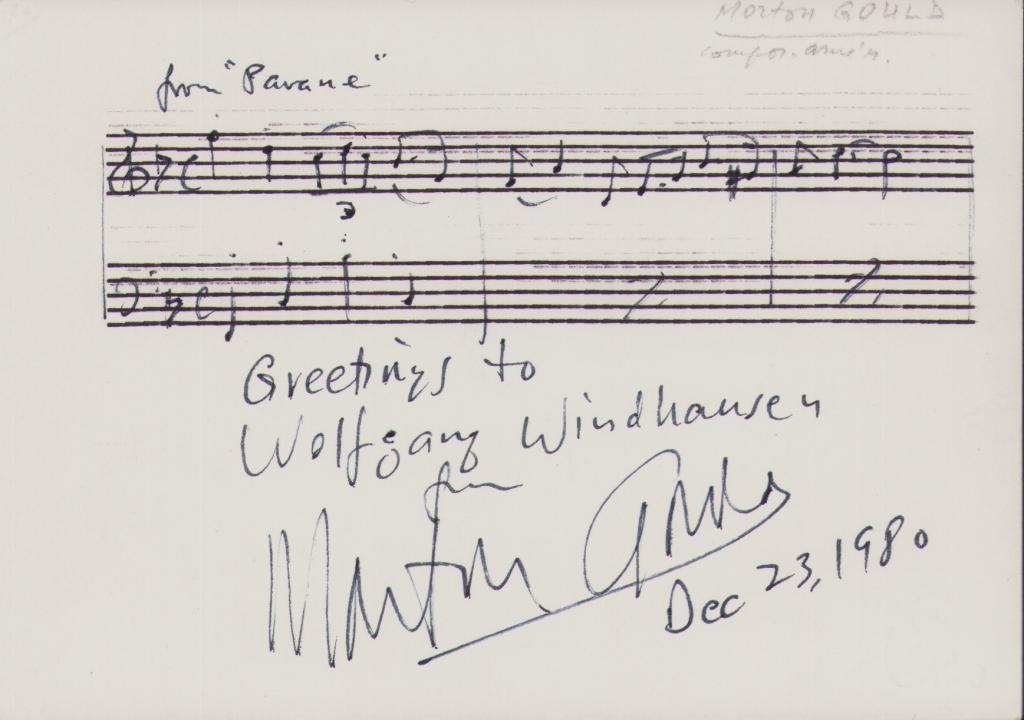 Morton GOULD
compos. amér.
from "Pavane"
Greetings to
Wolfgang Windhausen
from
Morton Gould
Dec 23, 1980